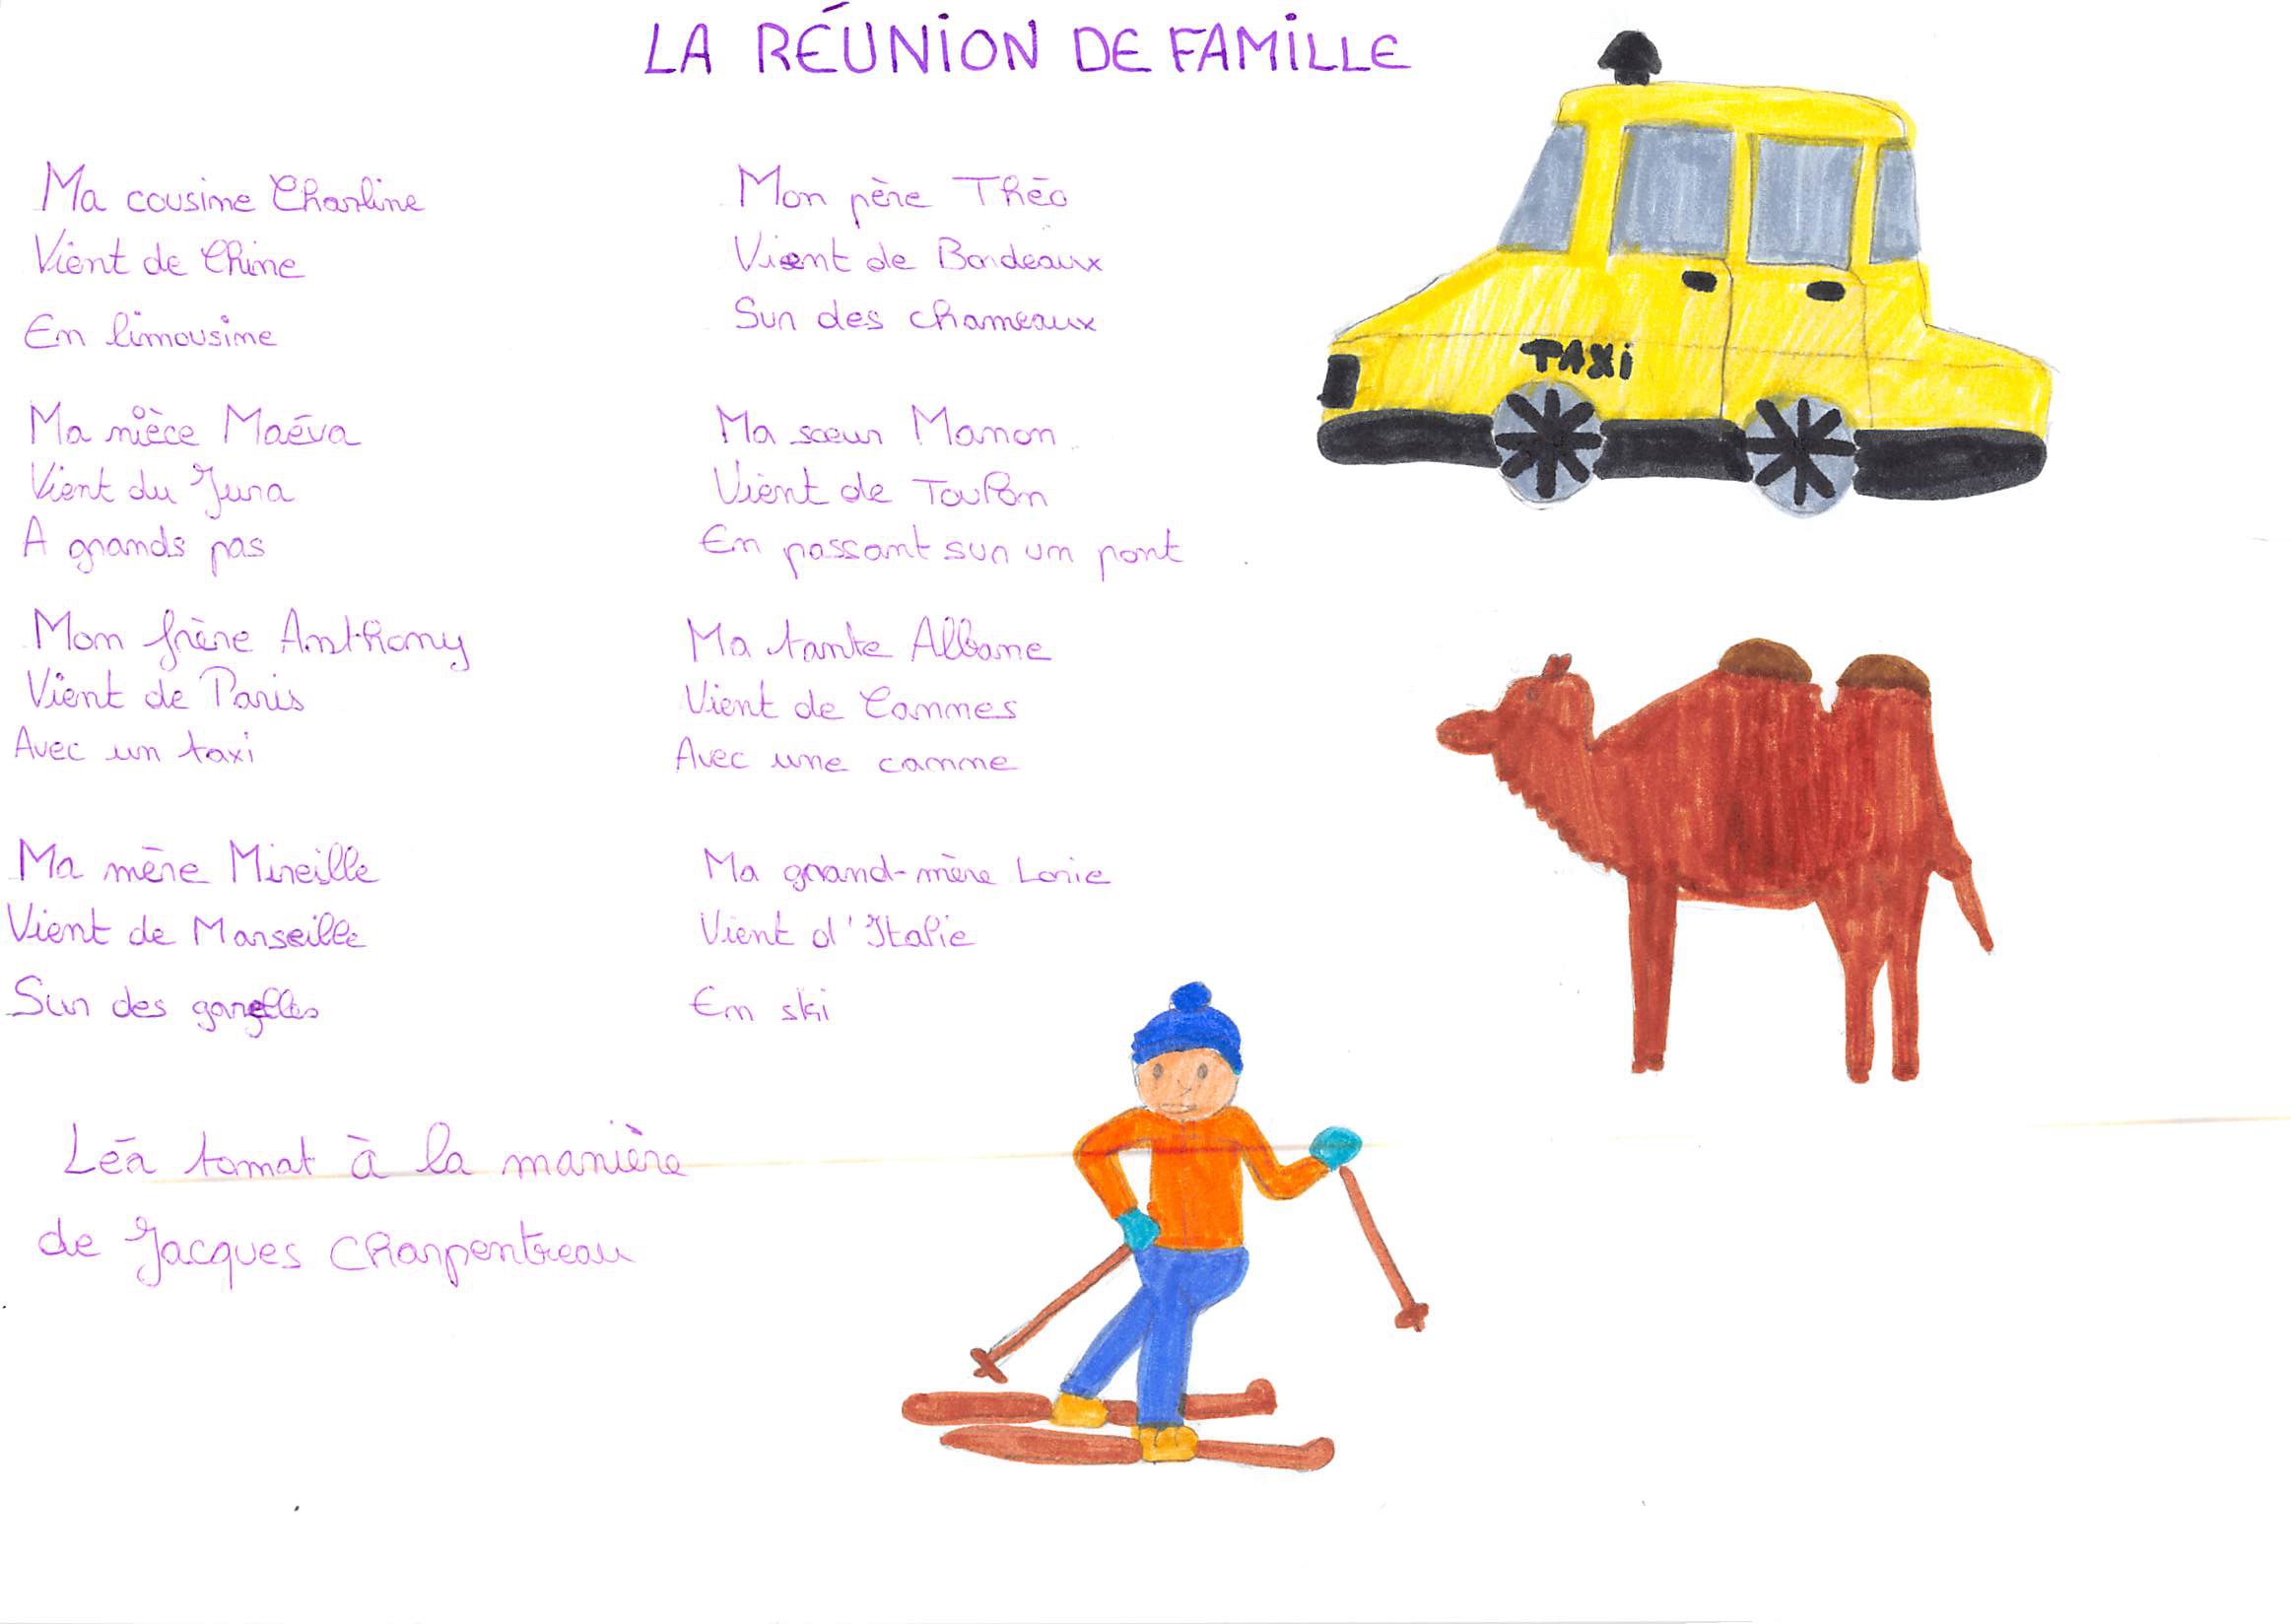 LA RÉUNION DE FAMILLE
Ma cousine Charline
Vient de Chine
En limousine
Ma nièce Maéva
Vient du Jura
A grands pas
Mon frère Anthony
Vient de Paris
Avec un taxi
Ma mère Mireille
Vient de Marseille
Sur des gazelles
Mon père Théo
Vient de Bordeaux
Sur des chameaux
Ma sœur Manon
Vient de Toulon
En passant sur un pont
Ma tante Albane
Vient de Cannes
Avec une canne
Ma grand-mère Lorie
Vient d'Italie
En ski
Léa tomat à la manière
de Jacques Charpentreau
TAXi